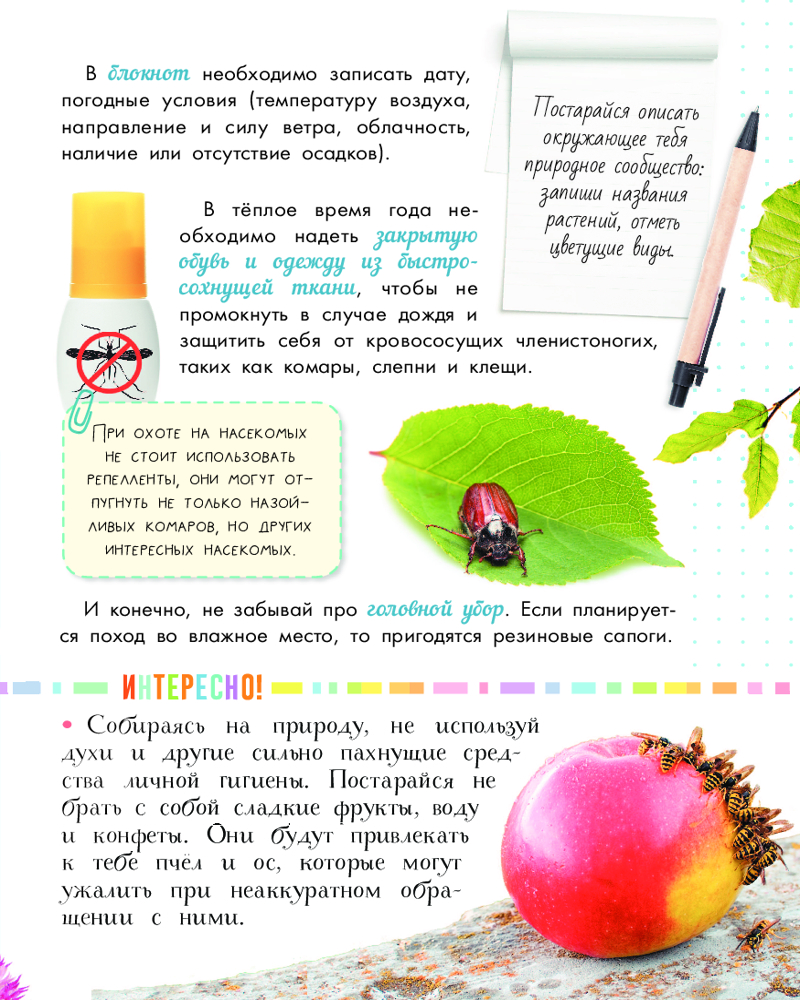 В блокнот необходимо записать дату,
погодные условия (температуру воздуха,
направление и силу ветра, облачность,
наличие или отсутствие осадков).
Постарайся описать
окружающее тебя
природное сообщество:
запиши названия
растений, отметь
цветущие виды.
В тёплое время года не-
обходимо надеть закрытую
обувь и одежду из быстро-
сохнущей ткани, чтобы не
промокнуть в случае дождя и
защитить себя от кровососущих членистоногих,
таких как комары, слепни и клещи.
При охоте на насекомых
не стоит использовать
репелленты, они могут от-
пугнуть не только назой-
ливых комаров, но других
интересных насекомых.
И конечно, не забывай про головной убор. Если планирует-
ся поход во влажное место, то пригодятся резиновые сапоги.
ИНТЕРЕСНО!
• Собираясь на природу, не используй
духи и другие сильно пахнущие сред-
ства личной гигиены. Постарайся не
брать с собой сладкие фрукты, воду
и конфеты. Они будут привлекать
к тебе пчёл и ос, которые могут
ужалить при неаккуратном обра-
щении с ними.